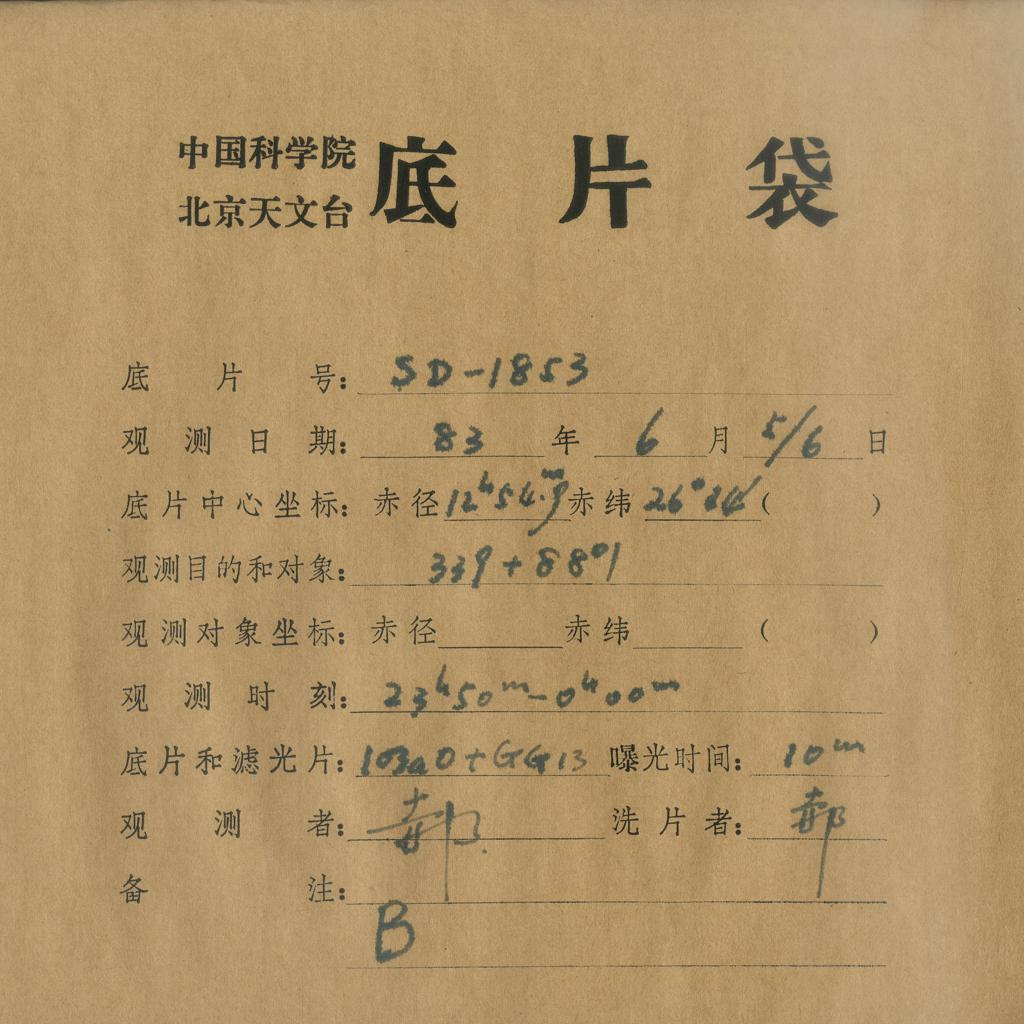 中国科学院
北京天文台
底片袋
底片号: SD-1853
观测日期: 83年 6月 5/6日
底片中心坐标: 赤径 12ʰ54.ᵐ9 赤纬 26°24′ ( )
观测目的和对象: 339+8801
观测对象坐标: 赤径 赤纬 ( )
观测时刻: 23ʰ50ᵐ-0ʰ00ᵐ
底片和滤光片: 103aO+GG13 曝光时间: 10ᵐ
观测者: 郝 洗片者: 郝
备注:
B